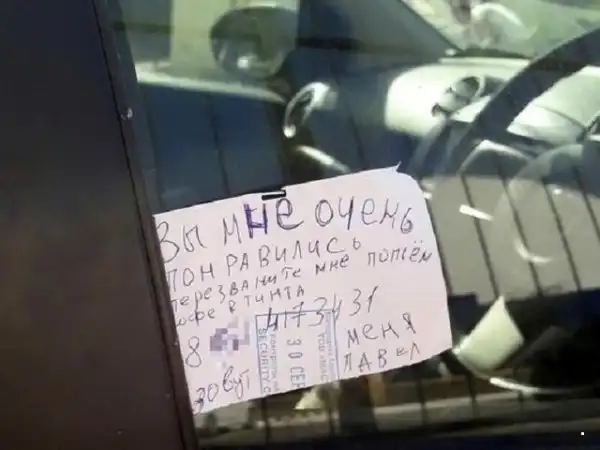 ВЫ МНЕ ОЧЕНЬ
ПОНРАВИЛИСЬ
перезваните мне попьём
кофе в ТИНТА
8 4173431
зовут меня
ПАВЕЛ
SECURITY
30 СЕР